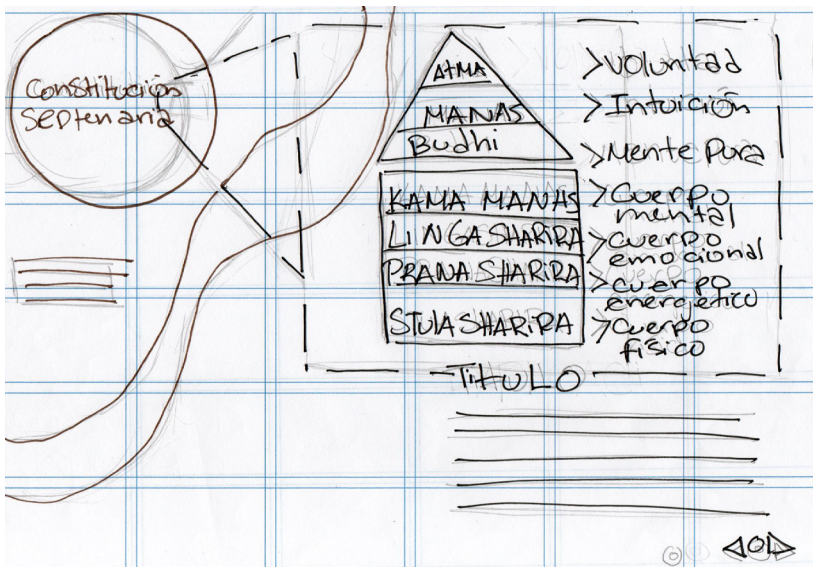 Constitución
Septenaria
ATMA
MANAS
Budhi
KAMA MANAS
LINGA SHARIRA
PRANA SHARIRA
STULA SHARIRA
>Voluntad
>Intuición
>Mente Pura
>Cuerpo
mental
>Cuerpo
emocional
>Cuerpo
energetico
>Cuerpo
físico
TITULO